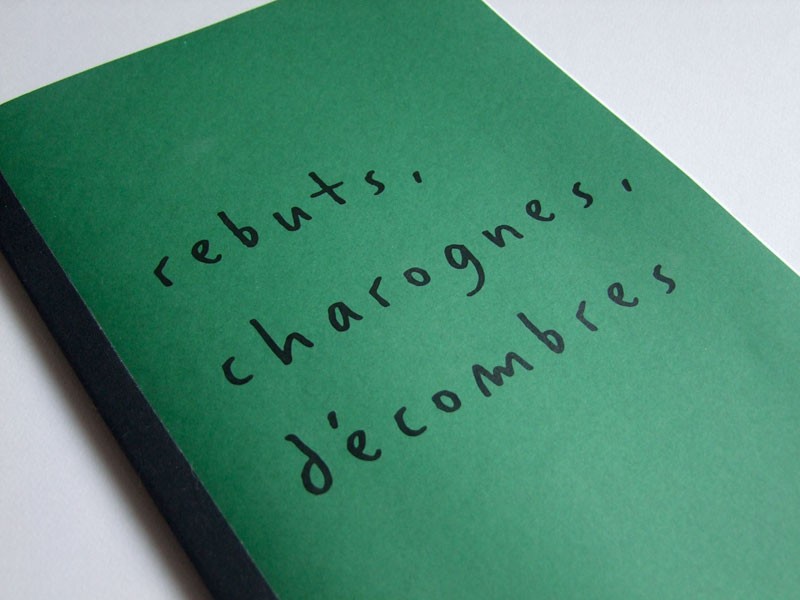 rebuts,
charognes,
décombres